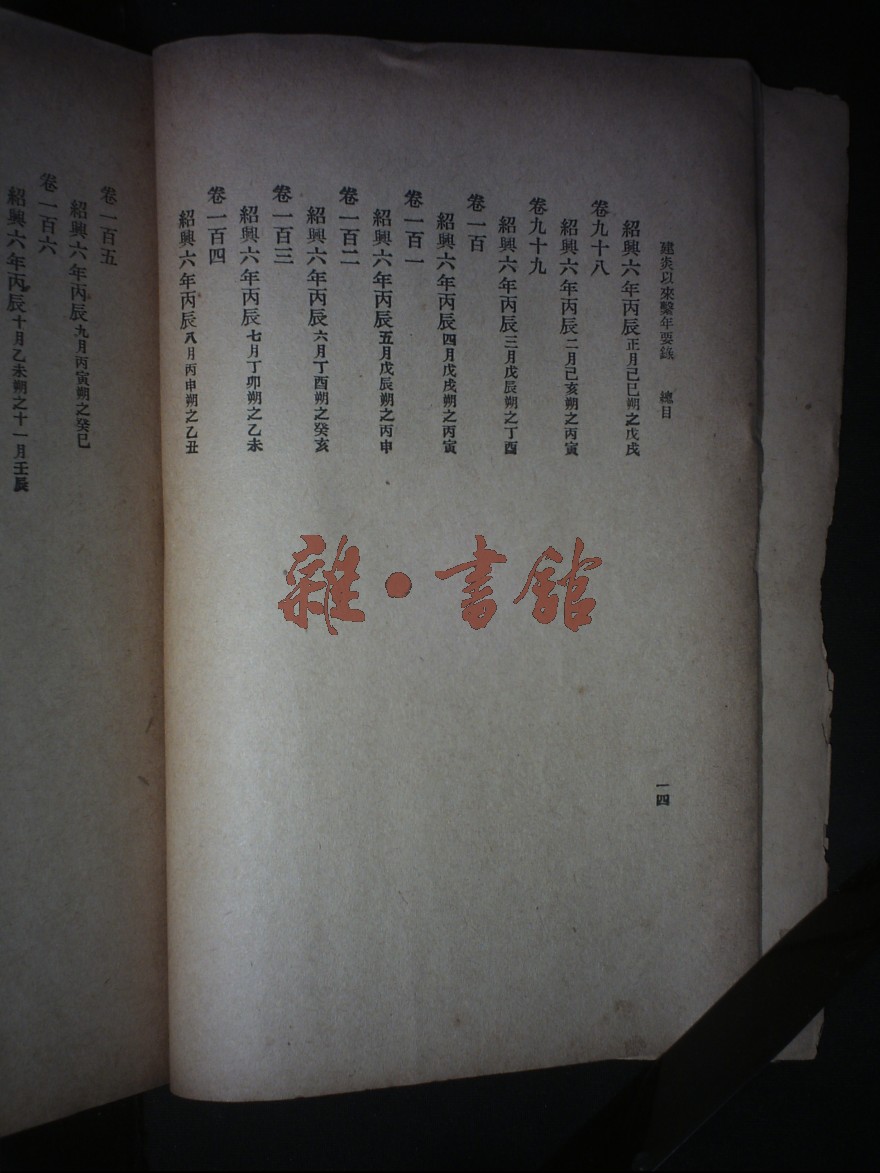 建炎以來繫年要錄 總目
一四
紹興六年丙辰正月己巳朔之戊戌
卷九十八
紹興六年丙辰二月己亥朔之丙寅
卷九十九
紹興六年丙辰三月戊辰朔之丁酉
卷一百
紹興六年丙辰四月戊戌朔之丙寅
卷一百一
紹興六年丙辰五月戊辰朔之丙申
卷一百二
紹興六年丙辰六月丁酉朔之癸亥
卷一百三
紹興六年丙辰七月丁卯朔之乙未
卷一百四
紹興六年丙辰八月丙申朔之乙丑
卷一百五
紹興六年丙辰九月丙寅朔之癸巳
卷一百六
紹興六年丙辰十月乙未朔之十一月壬辰
雜·書館